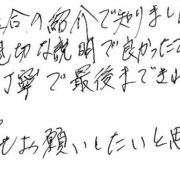 合の紹介で知りまし
切な説明で良かった
丁寧で最後まできれ
もお願いしたいと思